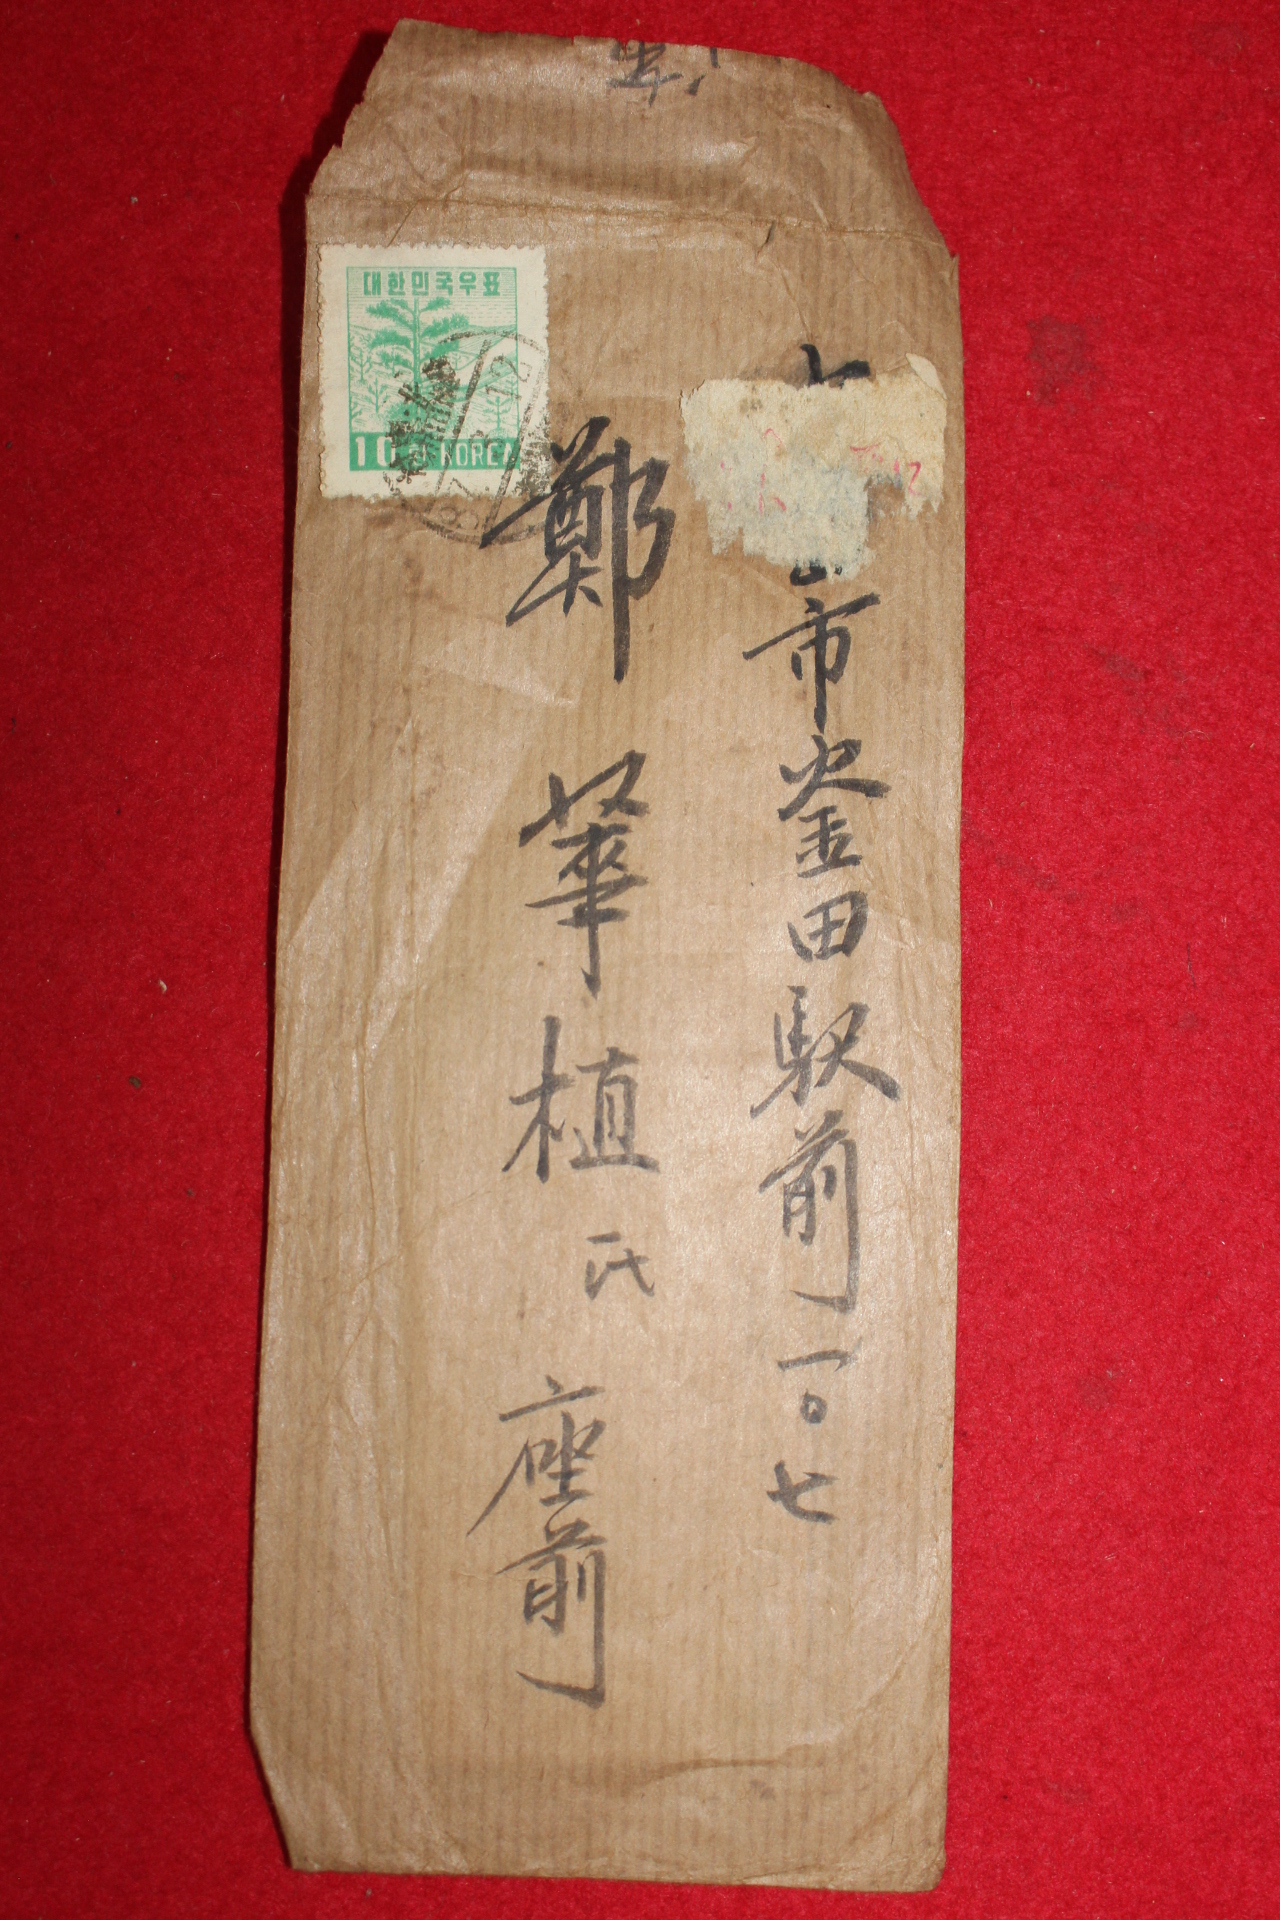 대한민국우표
10환 KOREA
市釜田駅前一〇七
鄭華植氏 座前